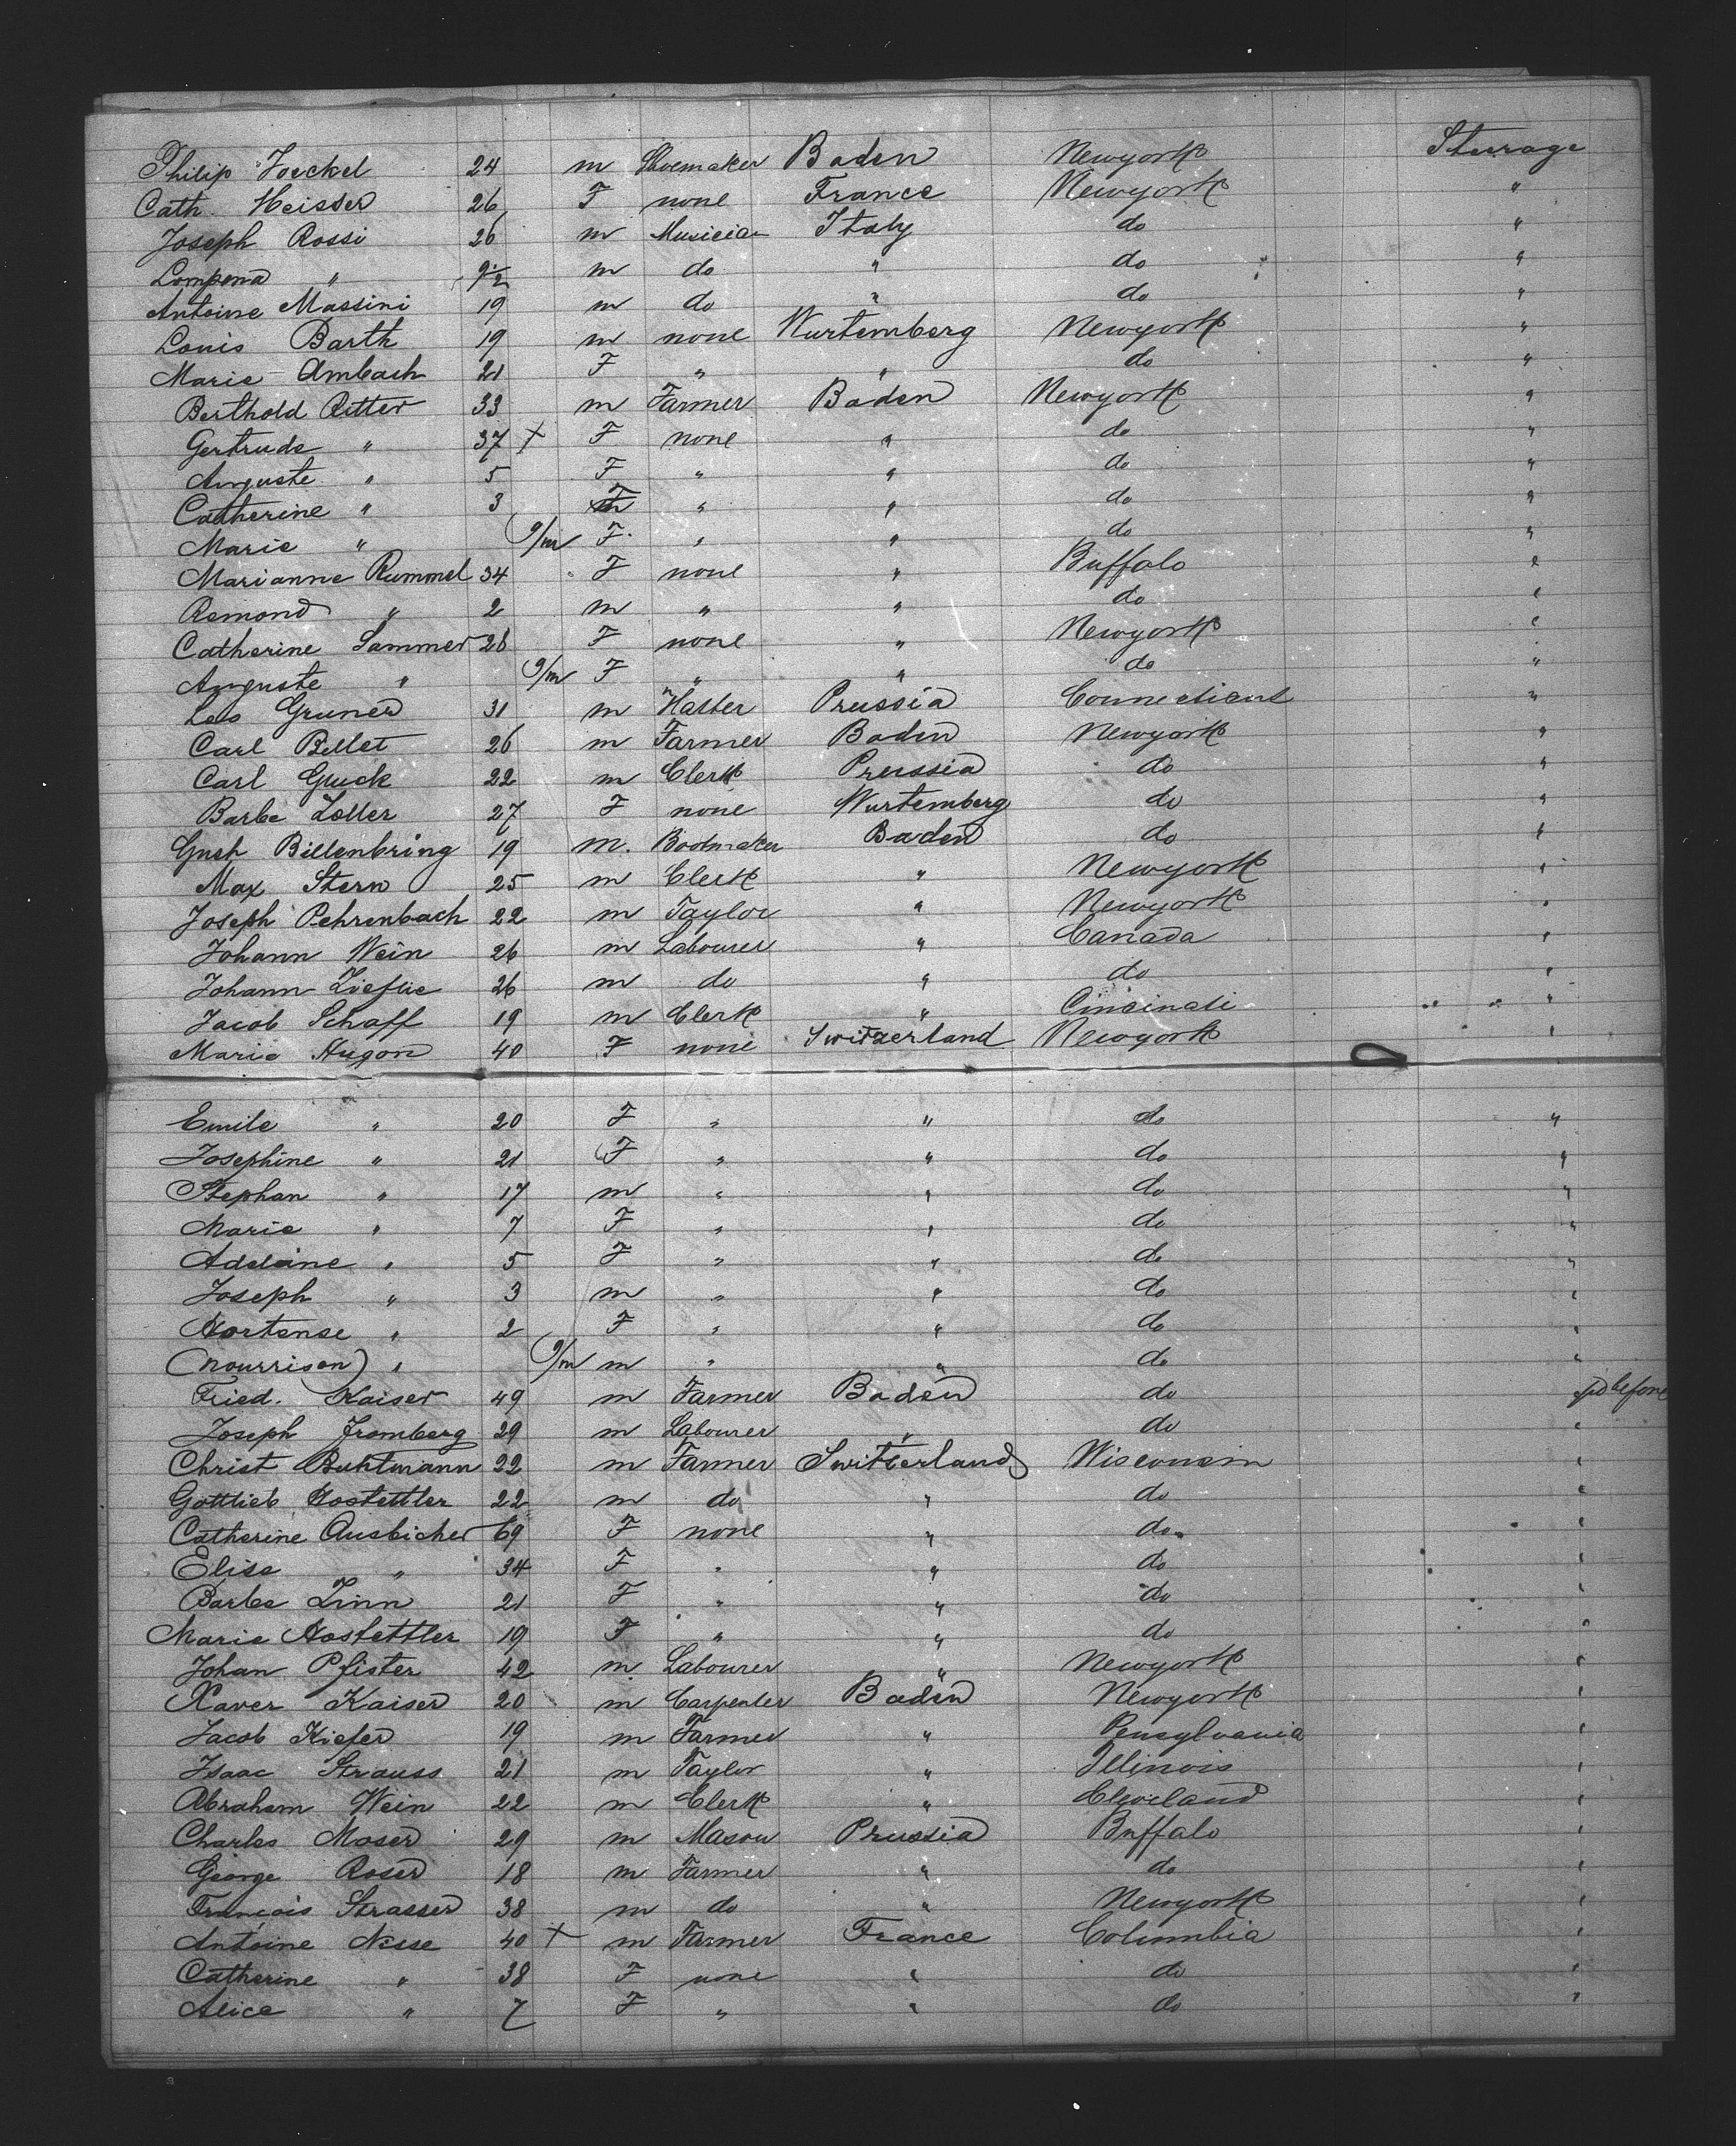 Philip Joeckel 24 m Shoemaker Baden Newyork Sturage
Cath. Heisser 26 F none France Newyork "
Joseph Rossi 26 m Musician Italy do "
Lompona " 9½ m do " do "
Antoine Massini 19 m do " do "
Louis Barth 19 m none Wurtemberg Newyork "
Marie Ambach 21 F " " do "
Berthold Ritter 33 m Farmer Baden Newyork "
Gertrude " 37 + F none " do "
Auguste " 5 F " " do "
Catherine " 3 F " " do "
Marie " 9/m F " " do "
Marianne Rummel 34 F none " Buffalo "
Remond " 2 m " " do "
Catherine Sammer 26 F none " Newyork "
Auguste " 9/m F " " do "
Leo Gruner 31 m Hatter Prussia Connecticut "
Carl Billet 26 m Farmer Baden Newyork "
Carl Guck 22 m Clerk Prussia do "
Barbe Loller 27 F none Wurtemberg do "
Gush Billenbring 19 m. Bootmaker Baden do "
Max Stern 25 m Clerk " Newyork "
Joseph Pehrenbach 22 m Taylor " Newyork "
Johann Wein 26 m Labourer " Canada "
Johann 26 m do " do "
Jacob Schaff 19 m Clerk " Cincinati " " "
Marie Hugon 40 F none Switzerland Newyork "
Emile " 20 F " " do "
Josephine " 21 F " " do "
Stephan " 17 m " " do "
Marie " 7 F " " do "
Adeleine " 5 F " " do "
Joseph " 3 m " " do "
Hortense " 2 F " " do "
(nourrison) " 9/m m " " do "
Fried. Kaiser 49 m Farmer Baden do before
Joseph Fromberg 29 m Labourer " do "
Christ Buhtmann 22 m Farmer Switterland Wisconsin "
Gottlieb Hostettler 22 m do " do "
Catherine Ausbicher 69 F none " do "
Elise " 34 F " " do "
Barbe Zinn 21 F " " do "
Marie Hostettler 19 F " " do "
Johan Pfister 42 m. Labourer " Newyork "
Xaver Kaiser 20 m Carpenter Baden Newyork "
Jacob Kiefer 19 m Farmer " Pensylvania "
Isaac Strauss 21 m Taylor " Illinois "
Abraham Wein 22 m Clerk " Cleveland "
Charles Moser 29 m Mason Prussia Buffalo "
George Roser 18 m Farmer " do "
François Strasser 38 m do " Newyork "
Antoine Nesse 40 + m Farmer France Columbia "
Catherine " 38 F none " do "
Alice " 7 F " " do "